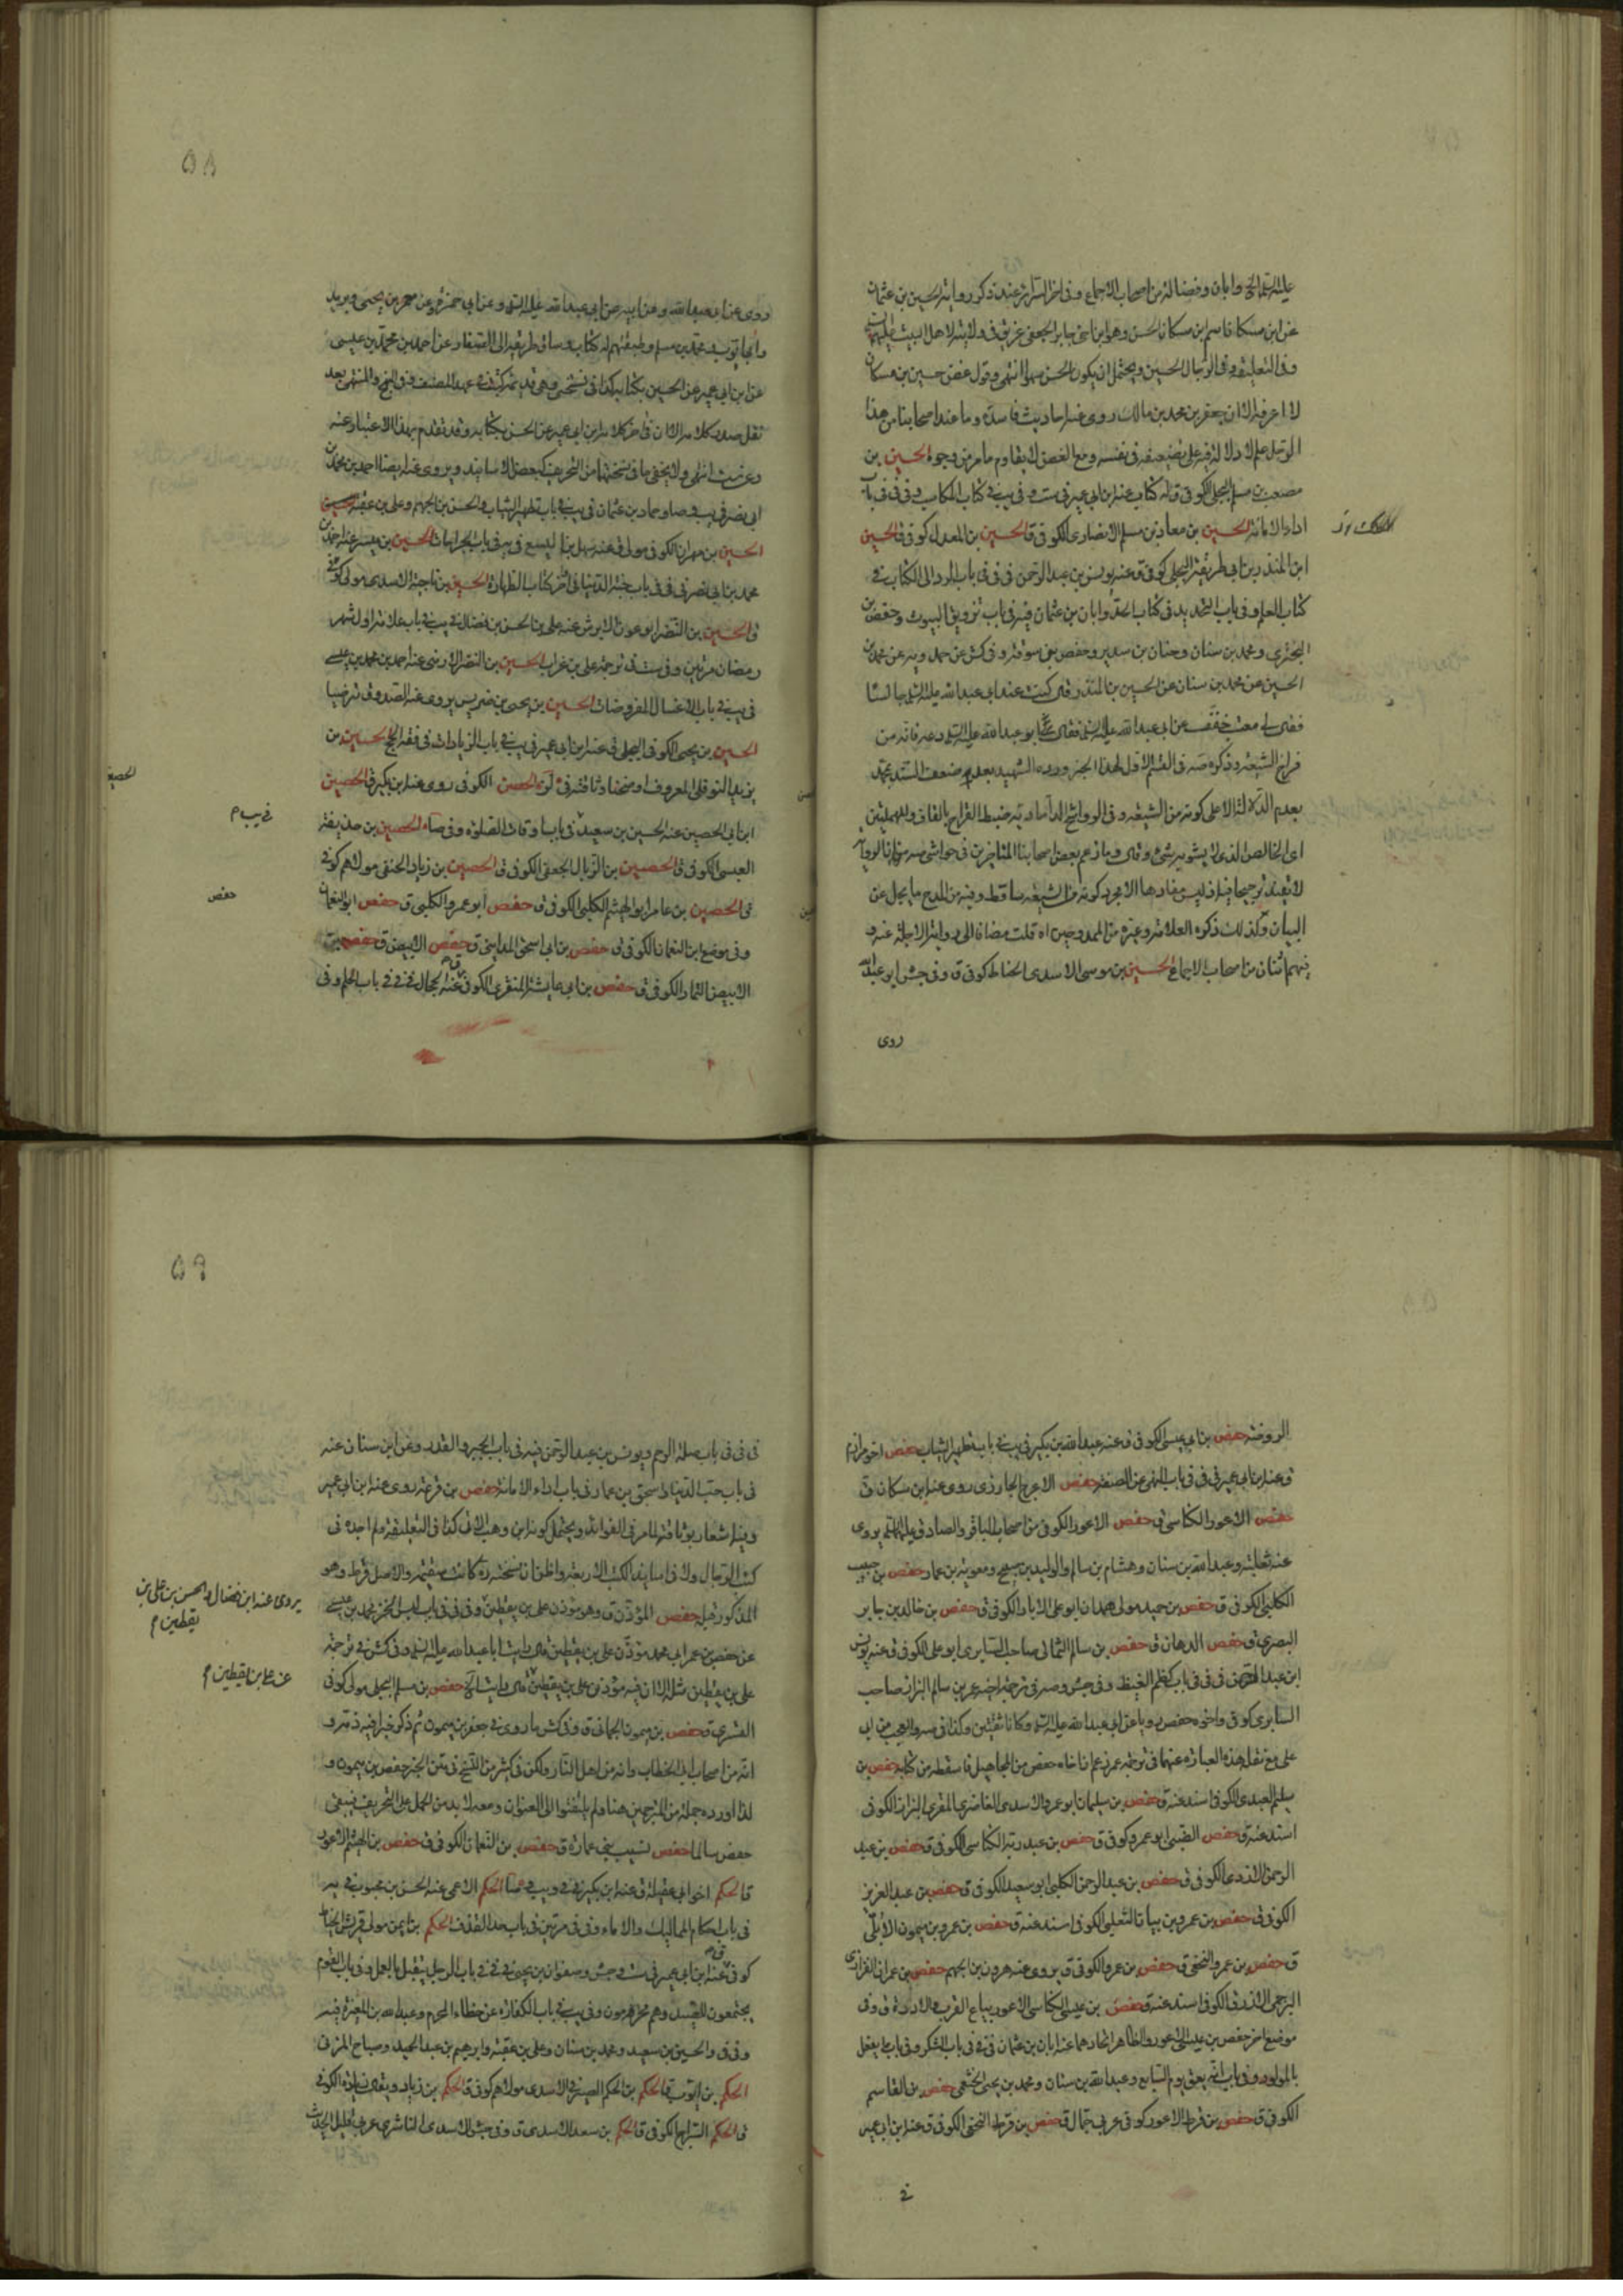 عليه السلم الخ وابان وفضالة من اصحاب الاجماع وفى اخر السرائر عند ذكر رواية الحسين بن عثمان
عن ابن مسكان قاسم ابن مسكان الحسن وهو ابن اخى جابر الجعفى عريق فى ولايته لاهل البيت عليهم
وفى التعليقة وفى الرجال الحسين ويحتمل ان يكون الحسن سهوا انتهى وقول غض حسين بن مسكان
لا اعرفه الا ان جعفر بن محمد بن مالك روى عنه احاديث فاسدة وما عند اصحابنا من هذا
الرجل علم لا دلالة فيه على تضعيفه فى نفسه ومع الغض لا يقاوم ما مر من وجوه الحسين بن
مصعب بن مسلم البجلى الكوفى ق له كتاب عنه ابن ابى عمير فى ست وفى يب فى كتاب المكاسب وفى فى فى باب
اداء الامانة الحسين بن معاذ بن مسلم الانصارى الكوفى ق الحسين بن المعدل كوفى ق الحسين
ابن المنذر بن ابى طريفة البجلى كوفى ق عنه يونس بن عبد الرحمن فى فى فى باب الرد الى الكتاب فى
كتاب العلم وفى باب التحديد فى كتاب الحدود وابان بن عثمان فيه فى باب تزويق البيوت وحفص بن
البخترى ومحمد بن سنان وحنان بن سدير وحفص بن سوقة وفى كش عن حمدويه عن محمد بن
الحسين عن محمد بن سنان عن الحسين بن المنذر قال كنت عند ابى عبد الله عليه السلم جالسا
فقال لى معتب خفف عن ابى عبد الله عليه السلم فقال ابو عبد الله عليه السلم دعه فانه من
فراخ الشيعة وذكره صه فى القسم الاول لهذا الخبر ورده الشهيد بعدم ضعف السند بمحمد
بعدم الدلالة الا على كونه من الشيعة وفى الرواشح الداماديه ضبط القراح بالقاف والمهملتين
اى الخالص الذى لا يشوبه شئ وقال وما زعم بعض اصحابنا المتاخرين فى حواشى صه ان الرواية
لا تفيد ترجيحا فيه اذ ليس مفادها الا مجرد كونه من الشيعة ساقط وفيه من المدح ما يجل عن
البيان وكذلك ذكره العلامة وغيره من الممدوحين اه قلت مضافا الى رواية الاجلة عنه و
فيهم اثنان من اصحاب الاجماع الحسين بن موسى الاسدى الحناط كوفى ق وفى جش ابو عبد الله
روى
٥٨
روى عن ابى عبد الله وعن ابيه عن ابى عبد الله عليه السلم وعن ابى حمزة وعن معمر بن يحيى وبريد
وابى ايوب ومحمد بن مسلم وطبقتهم له كتاب وساق طريقه الى الصفار عن احمد بن محمد بن عيسى
عن ابن ابى عمير عن الحسين بكتابه كذا فى نسختى وهى قديمة كتبت فى عهد المصنف وفى النهج والمنتهى بعد
نقل صدر كلامه الا ان فى اخر كلامه ابن ابى عمير عن الحسن بكتابه وقد تقدم بهذا الاعتبار عنه
وعن ست انتهى ولا يخفى ما فى نسختهما من التحريف كبعض الاسانيد ويروى عنه ايضا احمد بن محمد بن
ابى نصر فى يب وصا وحماد بن عثمان فى يب فى باب تطهير الثياب والحسن بن الجهم وعلى بن عقبة
الحسين بن مهران الكوفى مولى ق عنه سهل بن اليسع فى يه فى باب الجراحات الحسين بن ميسر عنه احمد بن
محمد بن ابى نصر فى فى فى باب جنة الدنيا فى اخر كتاب الطهارة الحسين بن ناجية الاسدى مولى كوفى
ق الحسين بن النضر ابو عون الابرش عنه على بن الحسن بن فضال فى يب فى باب علامة اول شهر
رمضان مرتين وفى ست فى ترجمة على بن غراب الحسين بن النضر الارمنى عنه احمد بن محمد بن عيسى
فى يب فى باب الاغسال المفروضات الحسين بن يحيى بن ضريس يروى عنه الصدوق مترضيا
الحسين بن يحيى الكوفى البجلى ق عنه ابن ابى عمير فى يب فى باب الزيادات فى فقه الحج الحسين بن
يزيد النوفلى المعروف اوضحنا وثاقته فى الحصين الكوفى روى عنه ابن بكير ق الحصين
ابن ابى الحصين عنه الحسين بن سعيد فى باب اوقات الصلوة وفى صا الحصين بن حذيفة
العبسى الكوفى ق الحصين بن الزبال الجعفى الكوفى ق الحصين بن زياد الحنفى مولاهم كوفى
ق الحصين بن عامر ابو الهيثم الكلبى الكوفى ق حفص ابو عمرو الكلبى ق حفص ابو النعمان
وفى موضع ابن النعمان الكوفى ق حفص بن ابى اسحق المدائنى ق حفص الابيض ق حفص بن
الابيض التمار الكوفى ق حفص بن ابى عايشة المنقرى الكوفى ق عنه الحجال فى فى فى باب الحلم وفى
فى يب م
حفص
الروضة حفص بن ابى عيسى الكوفى ق عنه عبد الله بن بكير فى يب فى باب تطهير الثياب حفص اخو مرازم
ق عنه ابن ابى عمير فى فى فى باب النهى عن الصفة حفص الاعرج الجازرى روى عنه ابن مسكان ق
حفص الاعور الكناسى ق حفص الاعور الكوفى من اصحاب الباقر والصادق عليهما السلم يروى
عنه ثعلبة وعبد الله بن سنان وهشام بن سالم والوليد بن صبيح ومعوية بن عمار حفص بن حبيب
الكلبى الكوفى ق حفص بن حميد مولى همدان ابو على الابار الكوفى ق حفص بن خالد بن جابر
البصرى ق حفص الدهان ق حفص بن سالم الثمالى صاحب السابرى ابو على الكوفى ق عنه يونس
ابن عبد الرحمن فى فى فى باب كظم الغيظ وفى جش وصه فى ترجمة اخيه عمر بن سالم البزاز صاحب
السابرى كوفى واخوه حفص رويا عن ابى عبد الله عليه السلم وكانا ثقتين وكذا فى صه والعجب من ابى
على مع نقل هذه العبارة عنهما فى ترجمة عمر زعم ان اخاه حفص من المجاهيل فاسقطه من كتابه حفص بن
سليم العبدى الكوفى اسند عنه ق حفص بن سليمان ابو عمر الاسدى الغاضرى المقرى البزاز الكوفى
اسند عنه ق حفص الضبى ابو عمرو كوفى ق حفص بن عبد ربه الكناسى الكوفى ق حفص بن عبد
الرحمن الازدى الكوفى ق حفص بن عبد الرحمن الكلبى ابو سعيد الكوفى ق حفص بن عبد العزيز
الكوفى ق حفص بن عمرو بن بيان التغلبى الكوفى اسند عنه ق حفص بن عمرو بن ميمون الابلى
ق حفص بن عمرو النخعى ق حفص بن عمرو الكوفى ق يروى عنه هرون بن الجهم حفص بن عمران الفزارى
البرجمى الازرق الكوفى اسند عنه ق حفص بن عيسى الكناسى الاعور بياع القرب والادارة ق وفى
موضع اخر حفص بن عيسى الاعور والظاهر اتحادهما عنه ابان بن عثمان فى فى فى باب الشكر وفى باب ما يفعل
بالمولود وفى باب انه يعق يوم السابع وعبد الله بن سنان ومحمد بن يحيى الخثعمى حفص بن القاسم
الكوفى ق حفص بن قرط الاعور كوفى عربى جمال ق حفص بن قرط النخعى الكوفى ق عنه ابن ابى عمير
فى
٥٩
فى فى فى باب صلة الرحم ويونس بن عبد الرحمن فيه فى باب الجبر والقدر وعن ابن سنان عنه
فى باب حب الدنيا واسحق بن عمار فى باب اداء الامانة حفص بن قرعة روى عنه ابن ابى عمير
وفيه اشعار بوثاقته لما مر فى الفوائد ويحتمل كونه ابن وهب الاتى كذا فى التعليقة ولم اجده فى
كتب الرجال ولا فى اسانيد الكتب الاربعة واظن ان نسخته ره كانت سقيمة والاصل قرط وهو
المذكور قبله حفص المؤذن ق وهو مؤذن على بن يقطين وفى فى فى باب لبس الخز محمد بن عيسى
عن حفص بن عمر ابى محمد مؤذن على بن يقطين قال رايت ابا عبد الله عليه السلم وفى كش فى ترجمة
على بن يقطين مثله الا ان فيه مؤذن على بن يقطين قال رايت الخ حفص بن مسلم البجلى مولى كوفى
القسرى ق حفص بن ميمون الجمانى ق وفى كش ما روى فى جعفر بن ميمون ثم ذكر خبرا فيه ذمه و
انه من اصحاب ابى الخطاب وانه من اهل النار ولكن فى كثير من النسخ فى متن الخبر حفص بن ميمون و
لذا اورده جملة من المترجمين هنا ولم يلتفتوا الى العنوان ومعه لا بد من الحمل على التحريف فيبقى
حفص سالما حفص نسيب بنى عمارة ق حفص بن النعمان الكوفى ق حفص بن الهيثم الاعور
ق الحكم اخو ابى عقيلة ق عنه ابن بكير فى فى ويب وصا الحكم الاعمى عنه الحسن بن محبوب فى يه
فى باب احكام المماليك والاماء وفى فى مرتين فى باب حد القذف الحكم بن ايمن مولى قريش الخياط
كوفى ق عنه ابن ابى عمير فى ست وجش وصفوان بن يحيى فى فى فى باب الرجل يتقبل بالعمل وفى باب القوم
يجتمعون للصيد وهم محرمون وفى يب فى باب الكفارة عن خطاء المحرم وعبد الله بن المغيرة فيه
وفى فى والحسين بن سعيد ومحمد بن سنان وعلى بن عقبة وابرهيم بن عبد الحميد وصباح المزنى
الحكم بن ايوب ق الحكم بن الحكم الصيرفى الاسدى مولاهم كوفى ق الحكم بن زياد ويقال زيادة الكوفى
ق الحكم السراج الكوفى ق الحكم بن سعد الاسدى ق وفى جش الاسدى الناشرى عربى قليل الحديث
يروى عنه ابن فضال والحسن بن على بن
يقطين م
عن على بن يقطين م